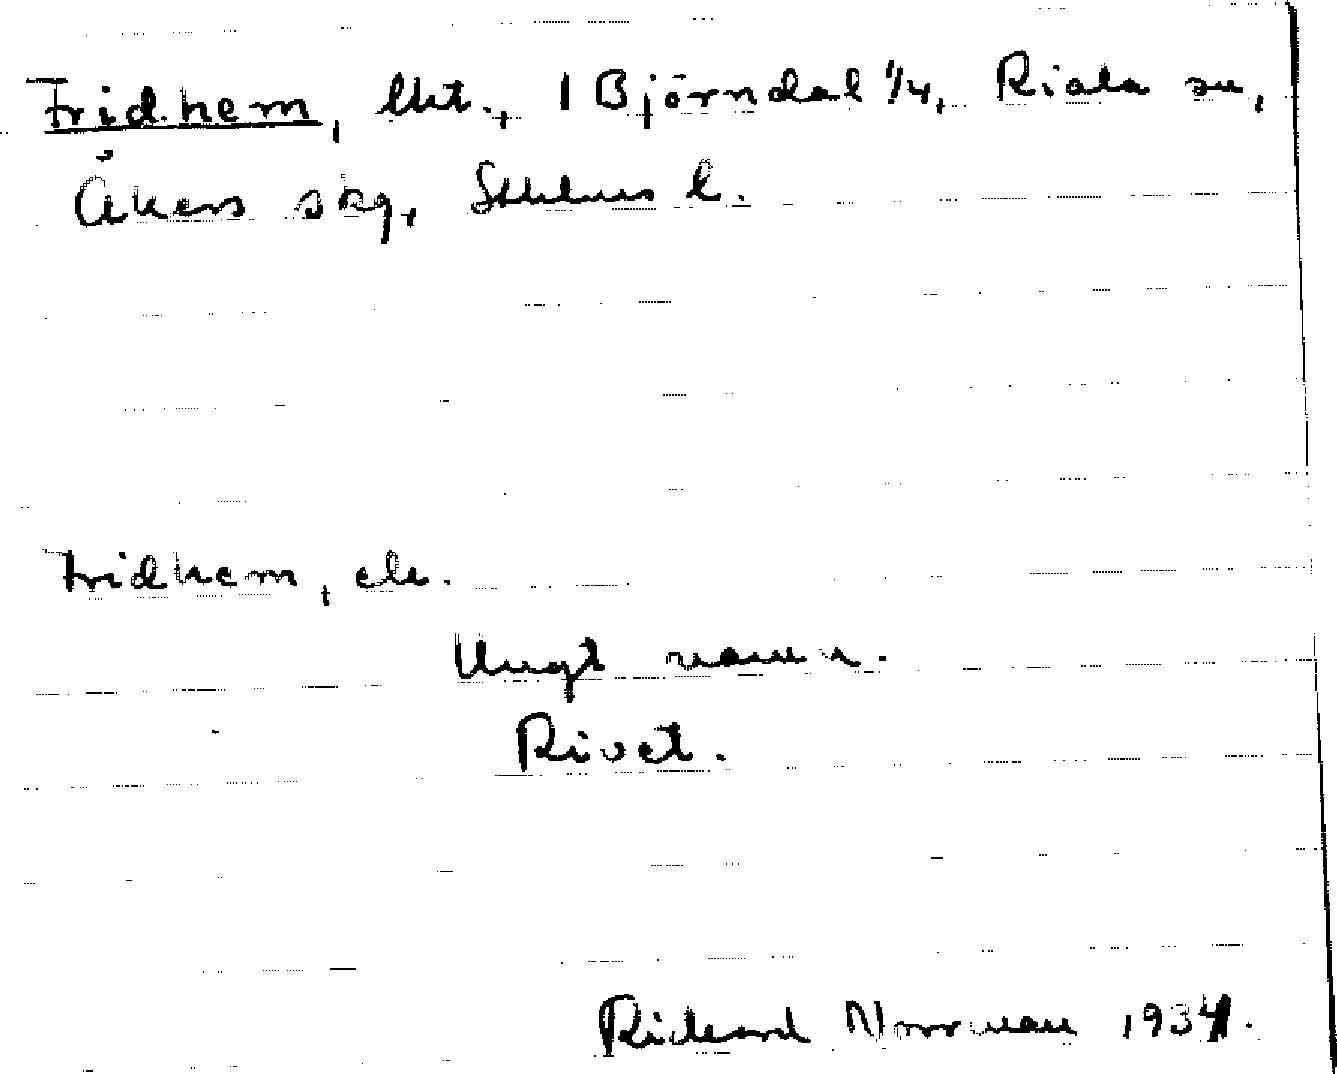 Fridhem, lht., 1 Björndal 1/4, Riala sn,
Åkers skg, Sthlms l.
Fridhem, ele.
Ungt namn.
Rivet.
Rickard Norrman 1934.